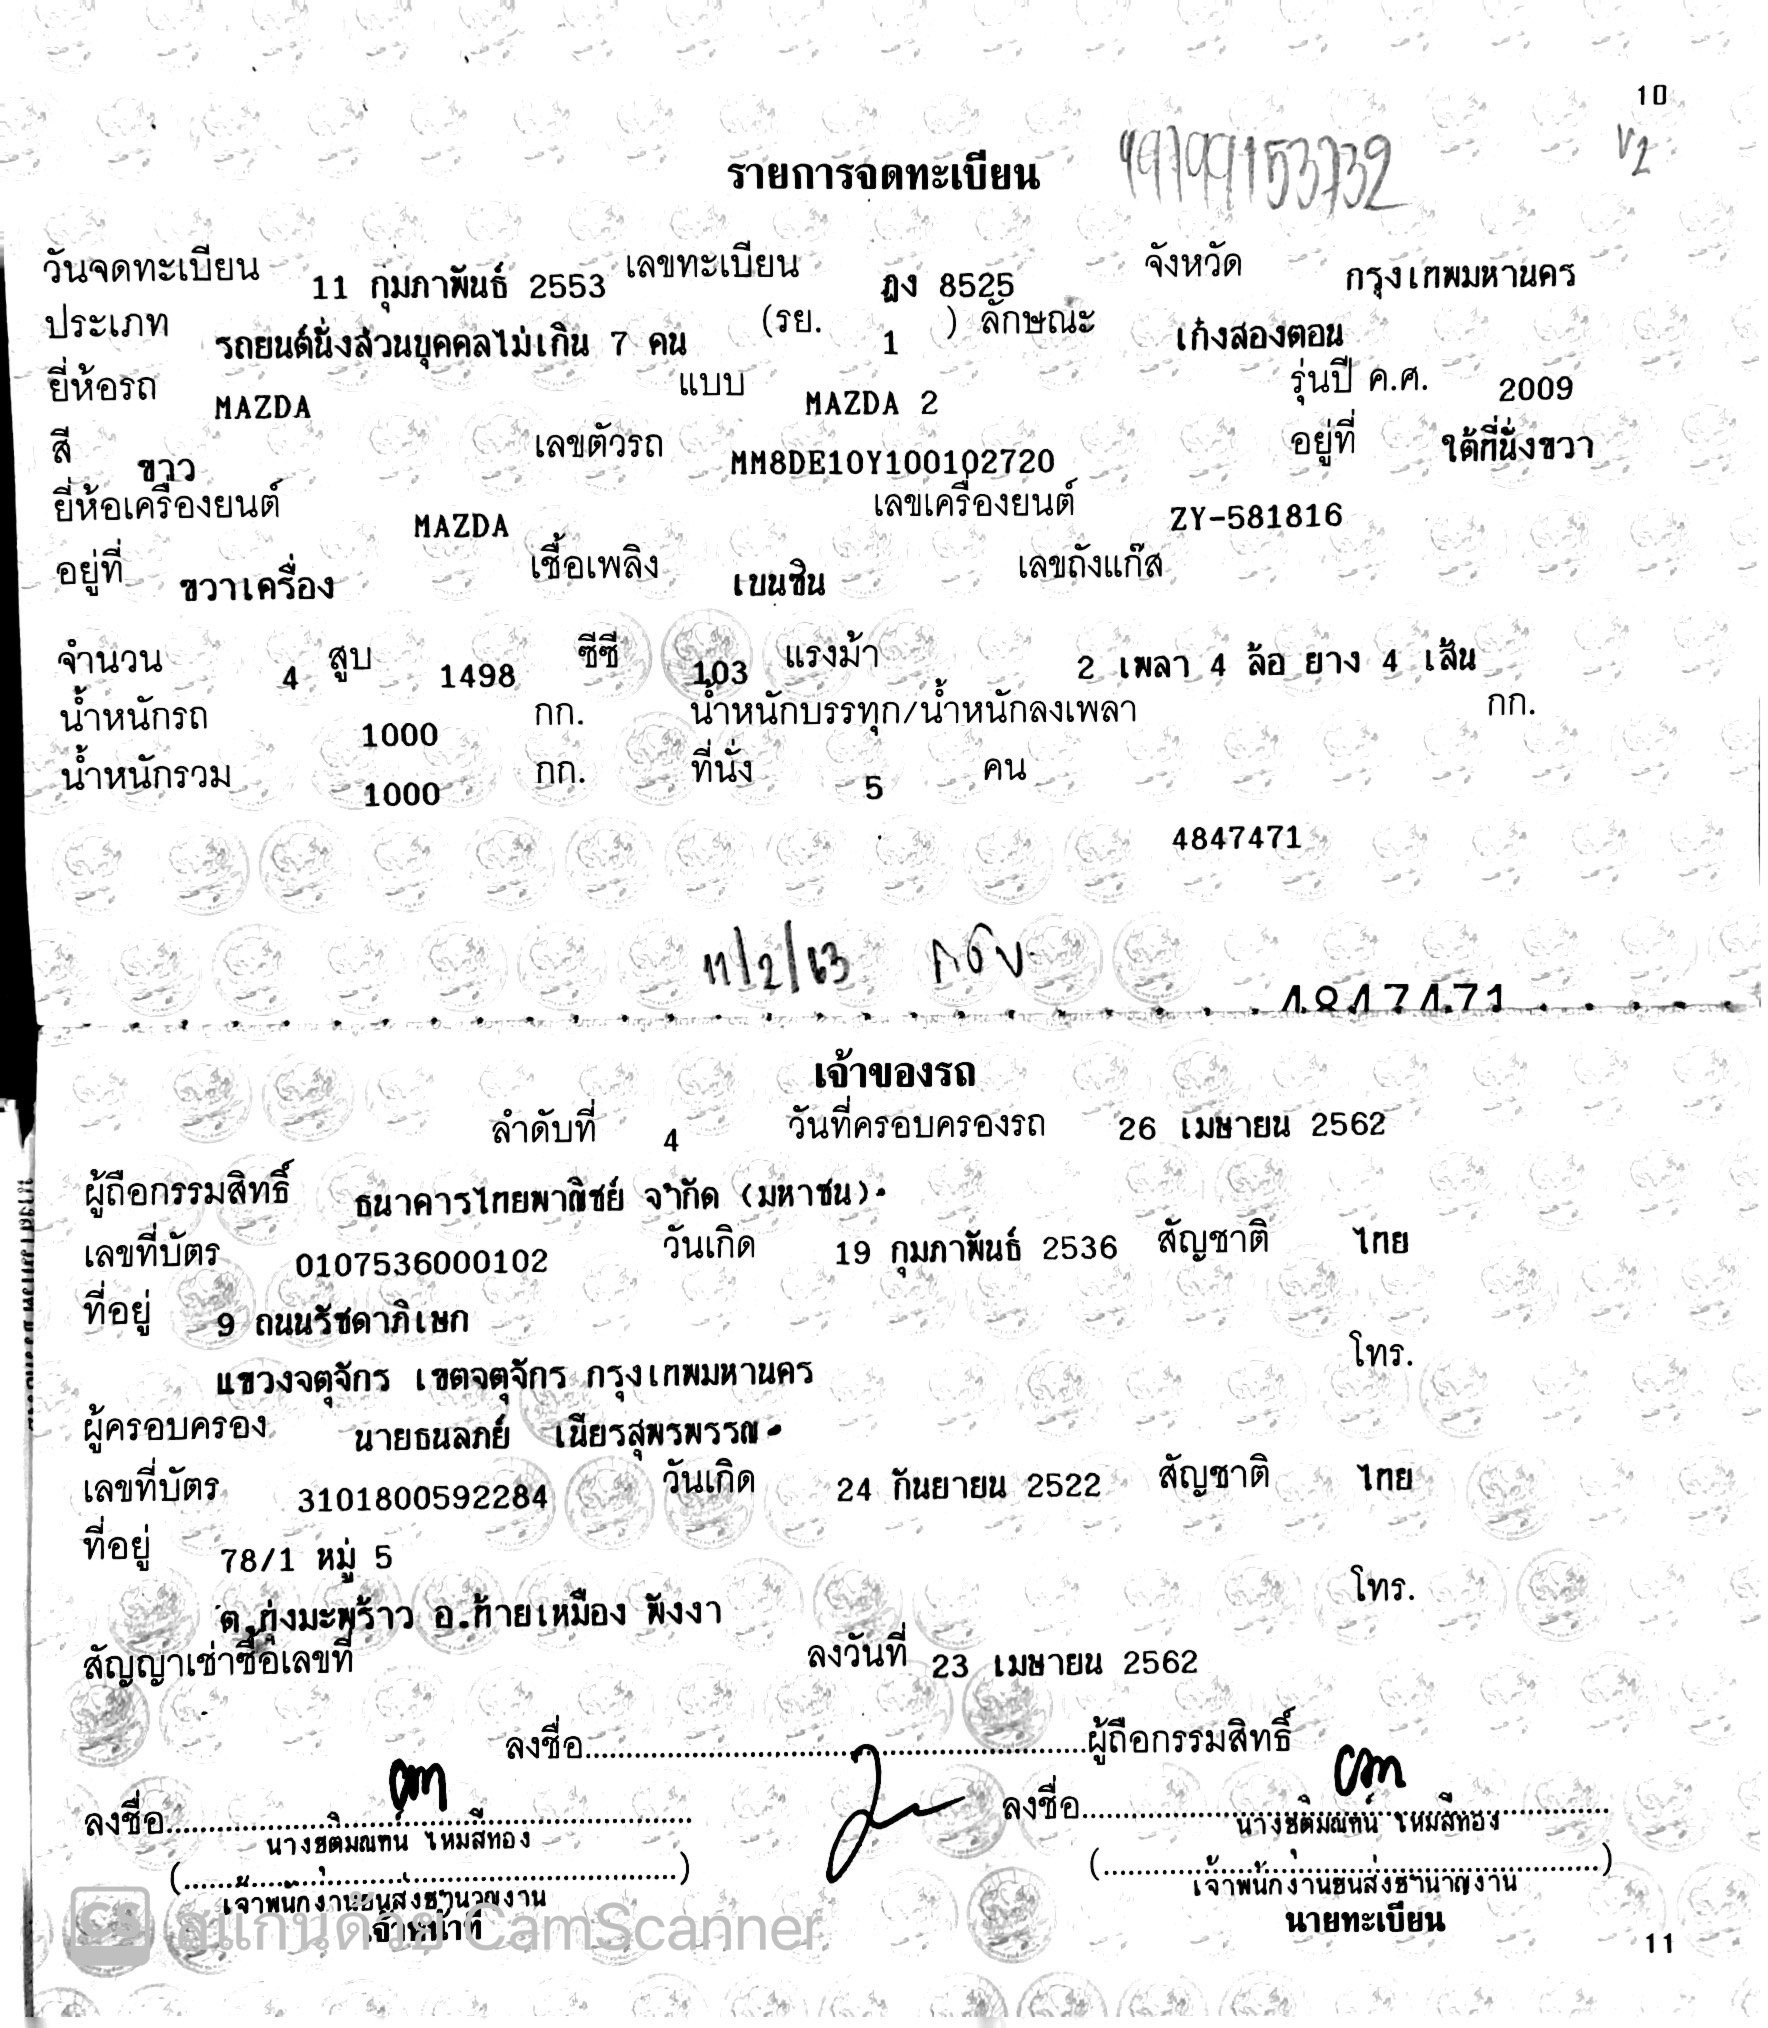 10
รายการจดทะเบียน 49799153732 V2
วันจดทะเบียน 11 กุมภาพันธ์ 2553 เลขทะเบียน ฎง 8525 จังหวัด กรุงเทพมหานคร
ประเภท รถยนต์นั่งส่วนบุคคลไม่เกิน 7 คน (รย. 1 ) ลักษณะ เก๋งสองตอน
ยี่ห้อรถ MAZDA แบบ MAZDA 2 รุ่นปี ค.ศ. 2009
สี ขาว เลขตัวรถ MM8DE10Y100102720 อยู่ที่ ใต้ที่นั่งขวา
ยี่ห้อเครื่องยนต์ MAZDA เลขเครื่องยนต์ ZY-581816
อยู่ที่ ขวาเครื่อง เชื้อเพลิง เบนซิน เลขถังแก๊ส
จำนวน 4 สูบ 1498 ซีซี 103 แรงม้า 2 เพลา 4 ล้อ ยาง 4 เส้น
น้ำหนักรถ 1000 กก. น้ำหนักบรรทุก/น้ำหนักลงเพลา กก.
น้ำหนักรวม 1000 กก. ที่นั่ง 5 คน
4847471
11/2/63
4847471
เจ้าของรถ
ลำดับที่ 4 วันที่ครอบครองรถ 26 เมษายน 2562
ผู้ถือกรรมสิทธิ์ ธนาคารไทยพาณิชย์ จำกัด (มหาชน)
เลขที่บัตร 0107536000102 วันเกิด 19 กุมภาพันธ์ 2536 สัญชาติ ไทย
ที่อยู่ 9 ถนนรัชดาภิเษก
แขวงจตุจักร เขตจตุจักร กรุงเทพมหานคร โทร.
ผู้ครอบครอง นายธนลภย์ เนียรสุพรพรรณ
เลขที่บัตร 3101800592284 วันเกิด 24 กันยายน 2522 สัญชาติ ไทย
ที่อยู่ 78/1 หมู่ 5
ต.ทุ่งมะพร้าว อ.ท้ายเหมือง พังงา โทร.
สัญญาเช่าซื้อเลขที่ ลงวันที่ 23 เมษายน 2562
ลงชื่อ ผู้ถือกรรมสิทธิ์
ลงชื่อ ลงชื่อ
นางชุติมณฑน์ ไหมสีทอง นางชุติมณฑน์ ไหมสีทอง
( ) ( )
เจ้าพนักงานขนส่งชำนาญงาน เจ้าพนักงานขนส่งชำนาญงาน
เจ้าหน้าที่ นายทะเบียน
CS สแกนด้วย CamScanner
11